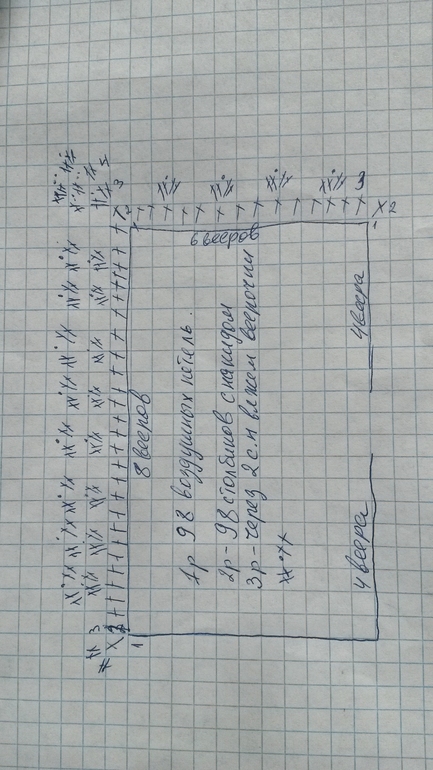 6 вееров
8 вееров
1р 98 воздушных петель.
2р - 98 столбиков с накидом
3р - через 2 с.н вяжем веерочки
4 веера
4 веера
1
2
3
1
2
3
3
5